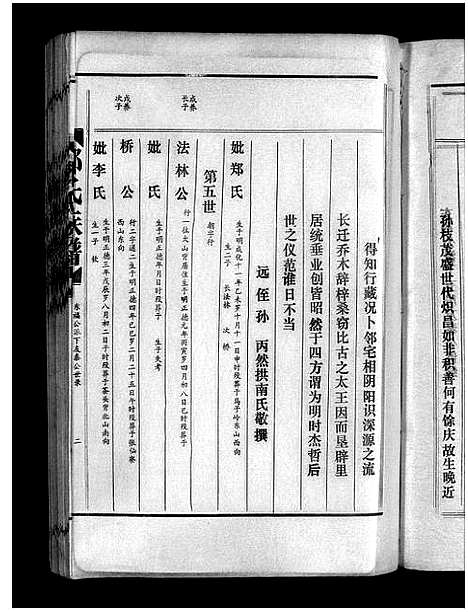 孙枝茂盛世代炽昌如非积善何有馀庆故生晚近
得知行藏况卜邻宅相阴阳识深源之流
长迁乔木辞梓桑窃比古之太王因而垦辟里
居统垂业创皆昭然于四方谓为明时杰哲后
世之仪范谁日不当
远侄孙 丙然拱南氏敬撰
妣郑氏 生于明成化十一年乙未岁十月十一日申时殁葬于马子岭东山西向
生二子 长法林 次桥
第五世 朝三行
成养长子
法林公 行一住大山背居住生于明正德元年丙寅岁四月初八日巳时殁葬于
妣氏 生于明正德年月日时殁葬于 生子失考
戌养次子
桥公 行二字通二生于明正德四年己巳岁二月二十五日午时殁葬于张仙寨
西山东向
妣李氏 生于明正德三年戊辰岁八月初二日子时殁葬于茶头背北山南向
生一子 钦
氏族谱
东福公派下友泰公世录
二